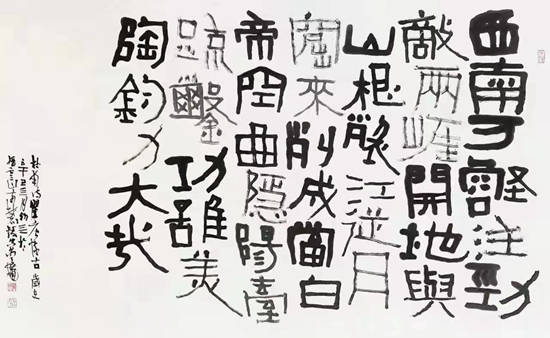 西南万壑注勁
敵兩崖開地與
山根裂江從月
窟來削成當白
帝空曲隱陽臺
疏鑿功雖美
陶鈞力大哉
杜甫詩瞿唐懷古 歲在
辛丑三月初三於